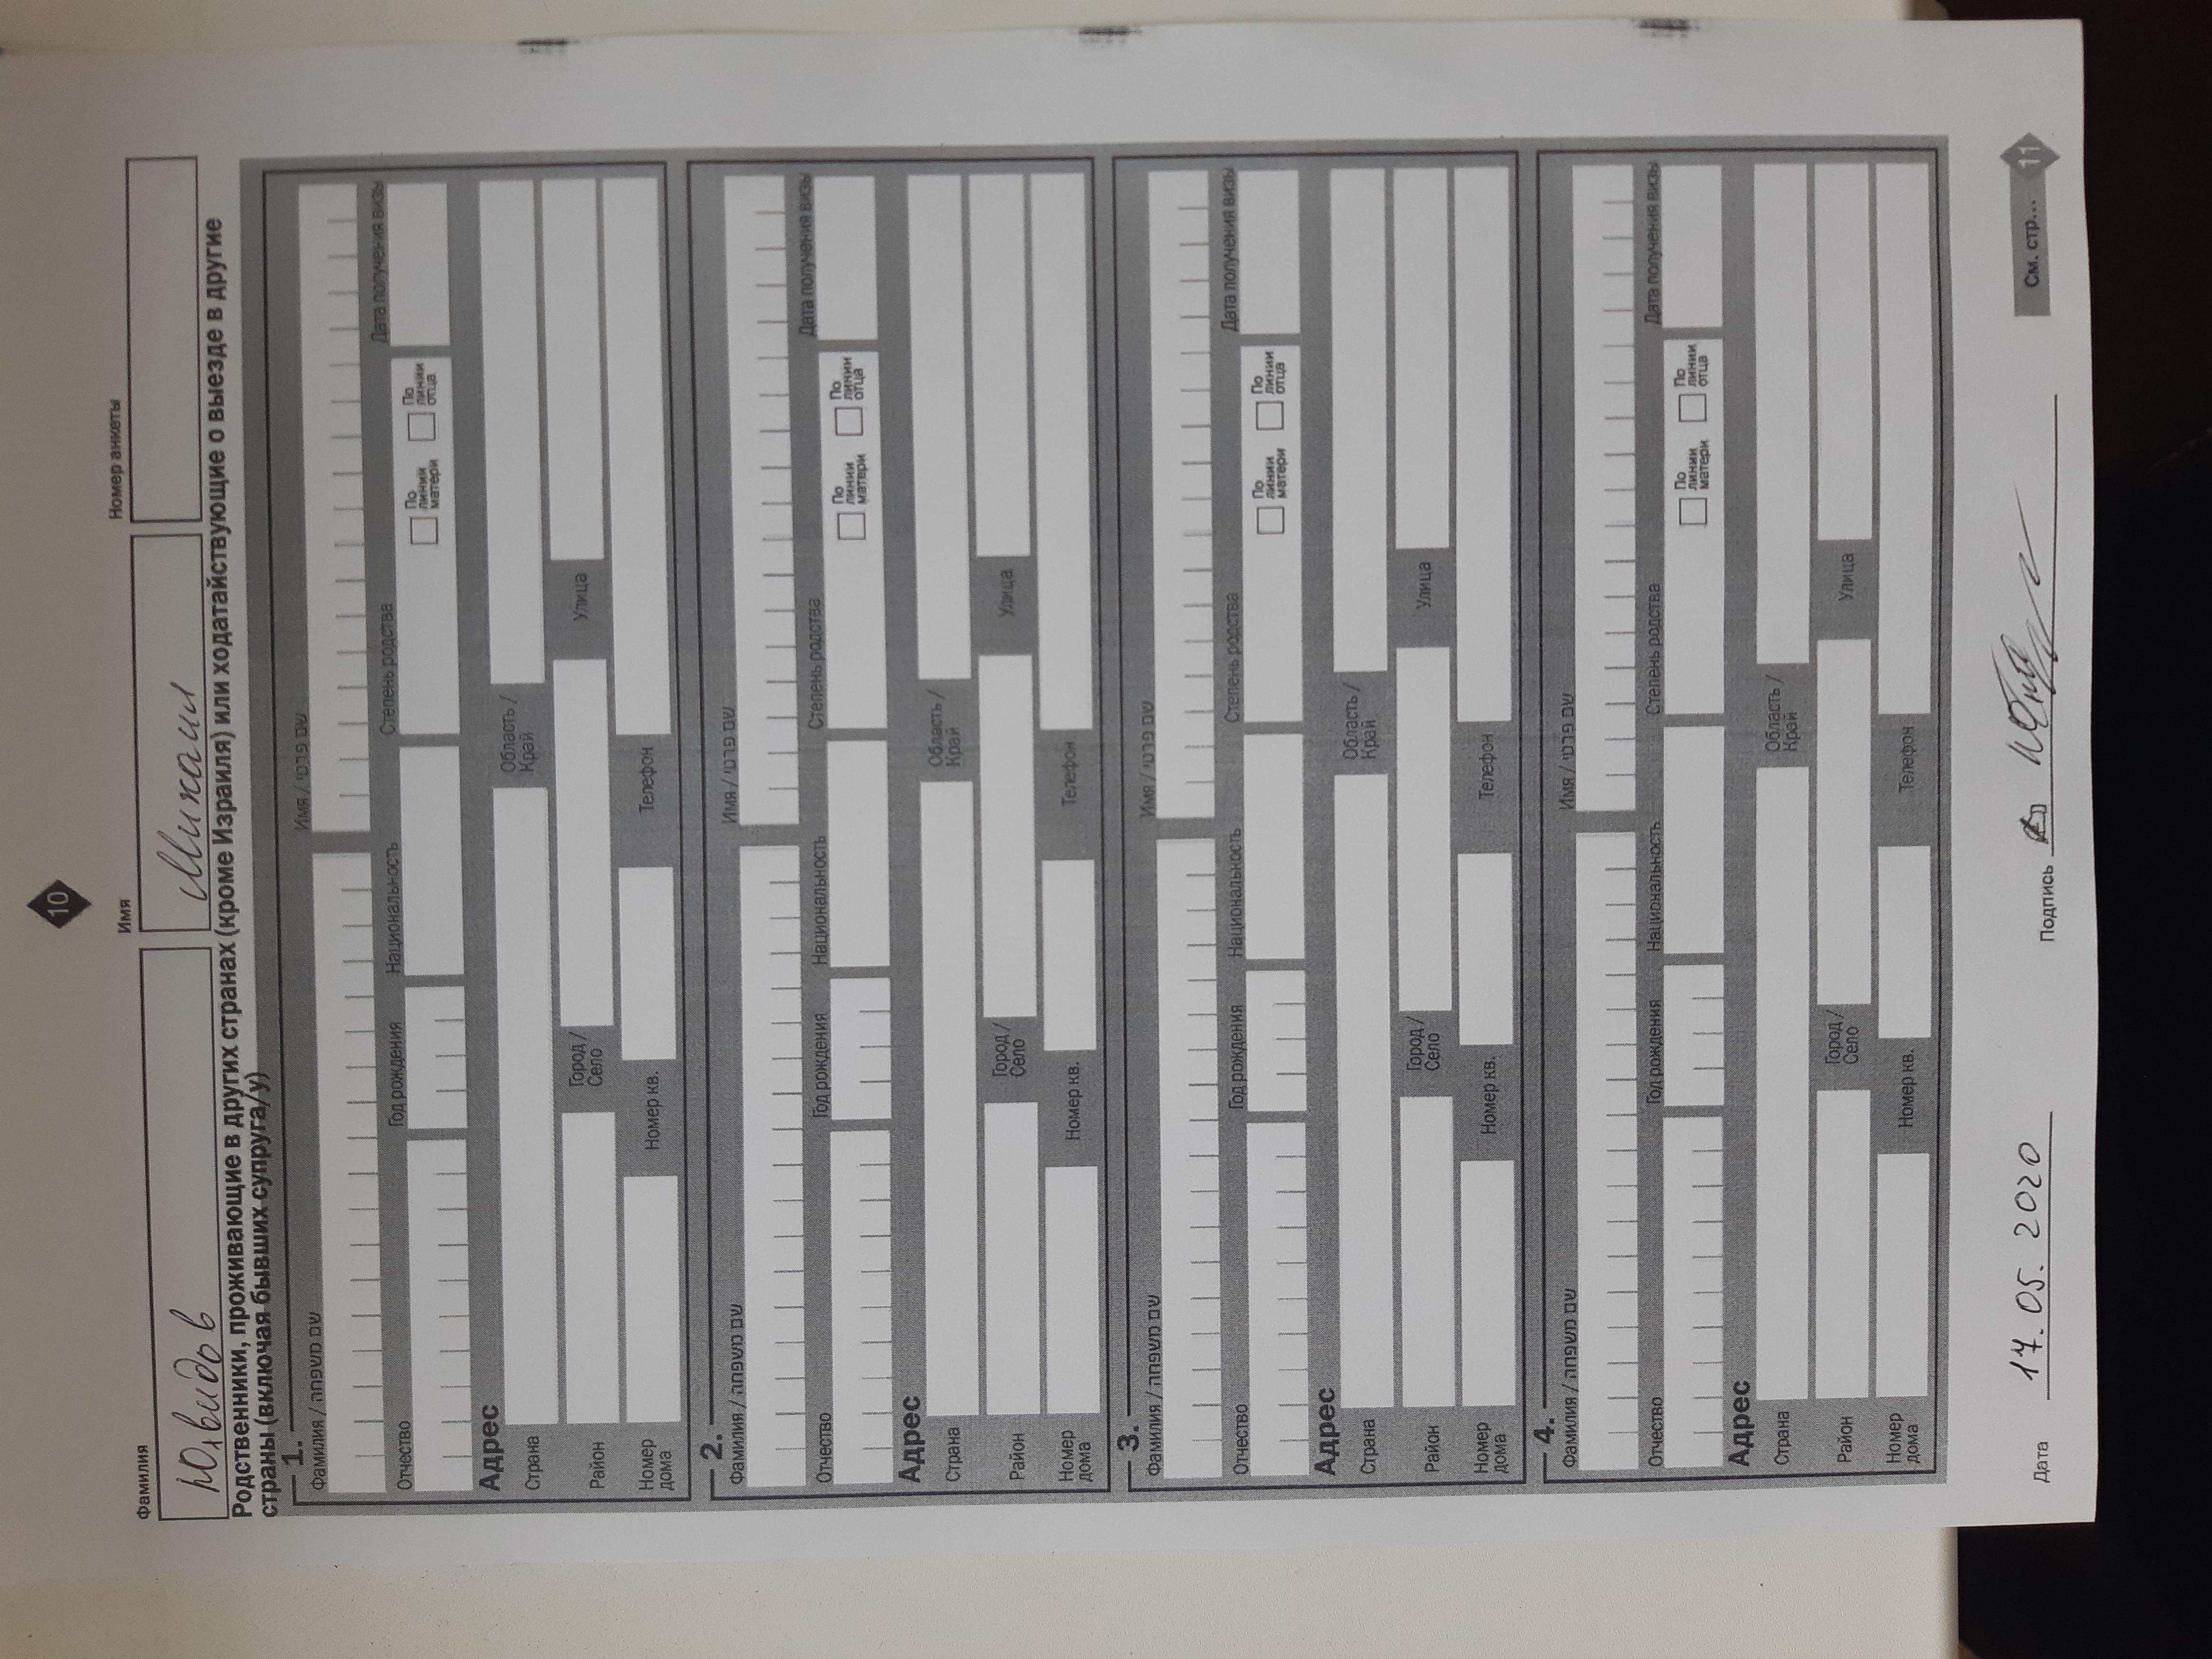 10
Фамилия Имя Номер анкеты
Юхвидов Михаил
Родственники, проживающие в других странах (кроме Израиля) или ходатайствующие о выезде в другие
страны (включая бывших супруга/у)
1.
Фамилия / שם משפחה Имя / שם פרטי
Отчество Год рождения Национальность Степень родства По линии матери По линии отца Дата получения визы
Адрес
Страна Область / Край
Район Город / Село Улица
Номер дома Номер кв. Телефон
2.
Фамилия / שם משפחה Имя / שם פרטי
Отчество Год рождения Национальность Степень родства По линии матери По линии отца Дата получения визы
Адрес
Страна Область / Край
Район Город / Село Улица
Номер дома Номер кв. Телефон
3.
Фамилия / שם משפחה Имя / שם פרטי
Отчество Год рождения Национальность Степень родства По линии матери По линии отца Дата получения визы
Адрес
Страна Область / Край
Район Город / Село Улица
Номер дома Номер кв. Телефон
4.
Фамилия / שם משפחה Имя / שם פרטי
Отчество Год рождения Национальность Степень родства По линии матери По линии отца Дата получения визы
Адрес
Страна Область / Край
Район Город / Село Улица
Номер дома Номер кв. Телефон
Дата 17.05.2020 Подпись См. стр... 11